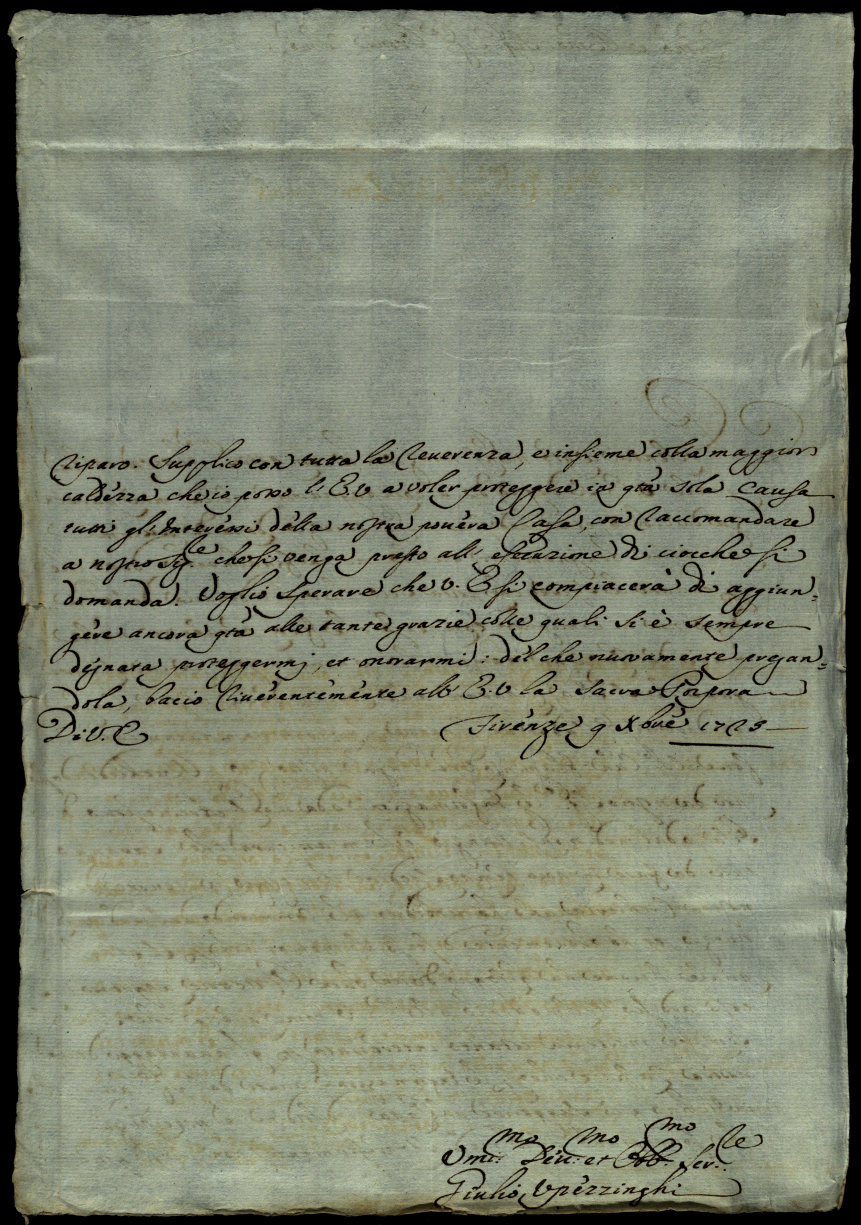 riparo. Supplico con tutta la reverenza, e insieme colla maggior
caldezza che io posso l'E.V a voler proteggere in qta sola causa
tutti gl'Interessi della nostra povera Casa, con raccomandare
a nostro Sige che si venga presto all' esecuzione di ciocche si
domanda. Voglio sperare che V. E si compiacerà di aggiun=
gere ancora qta alle tante grazie, colle quali si è sempre
degnata proteggermi, et onorarmi: del che nuovamente pregan=
dola, bacio riverentemente all' E.V la sacra Porpora
Di V. E
Firenze 9 Xbre 1725
Umi:mo Dev:mo et Obb:mo Ser:re
Giulio Upezzinghi